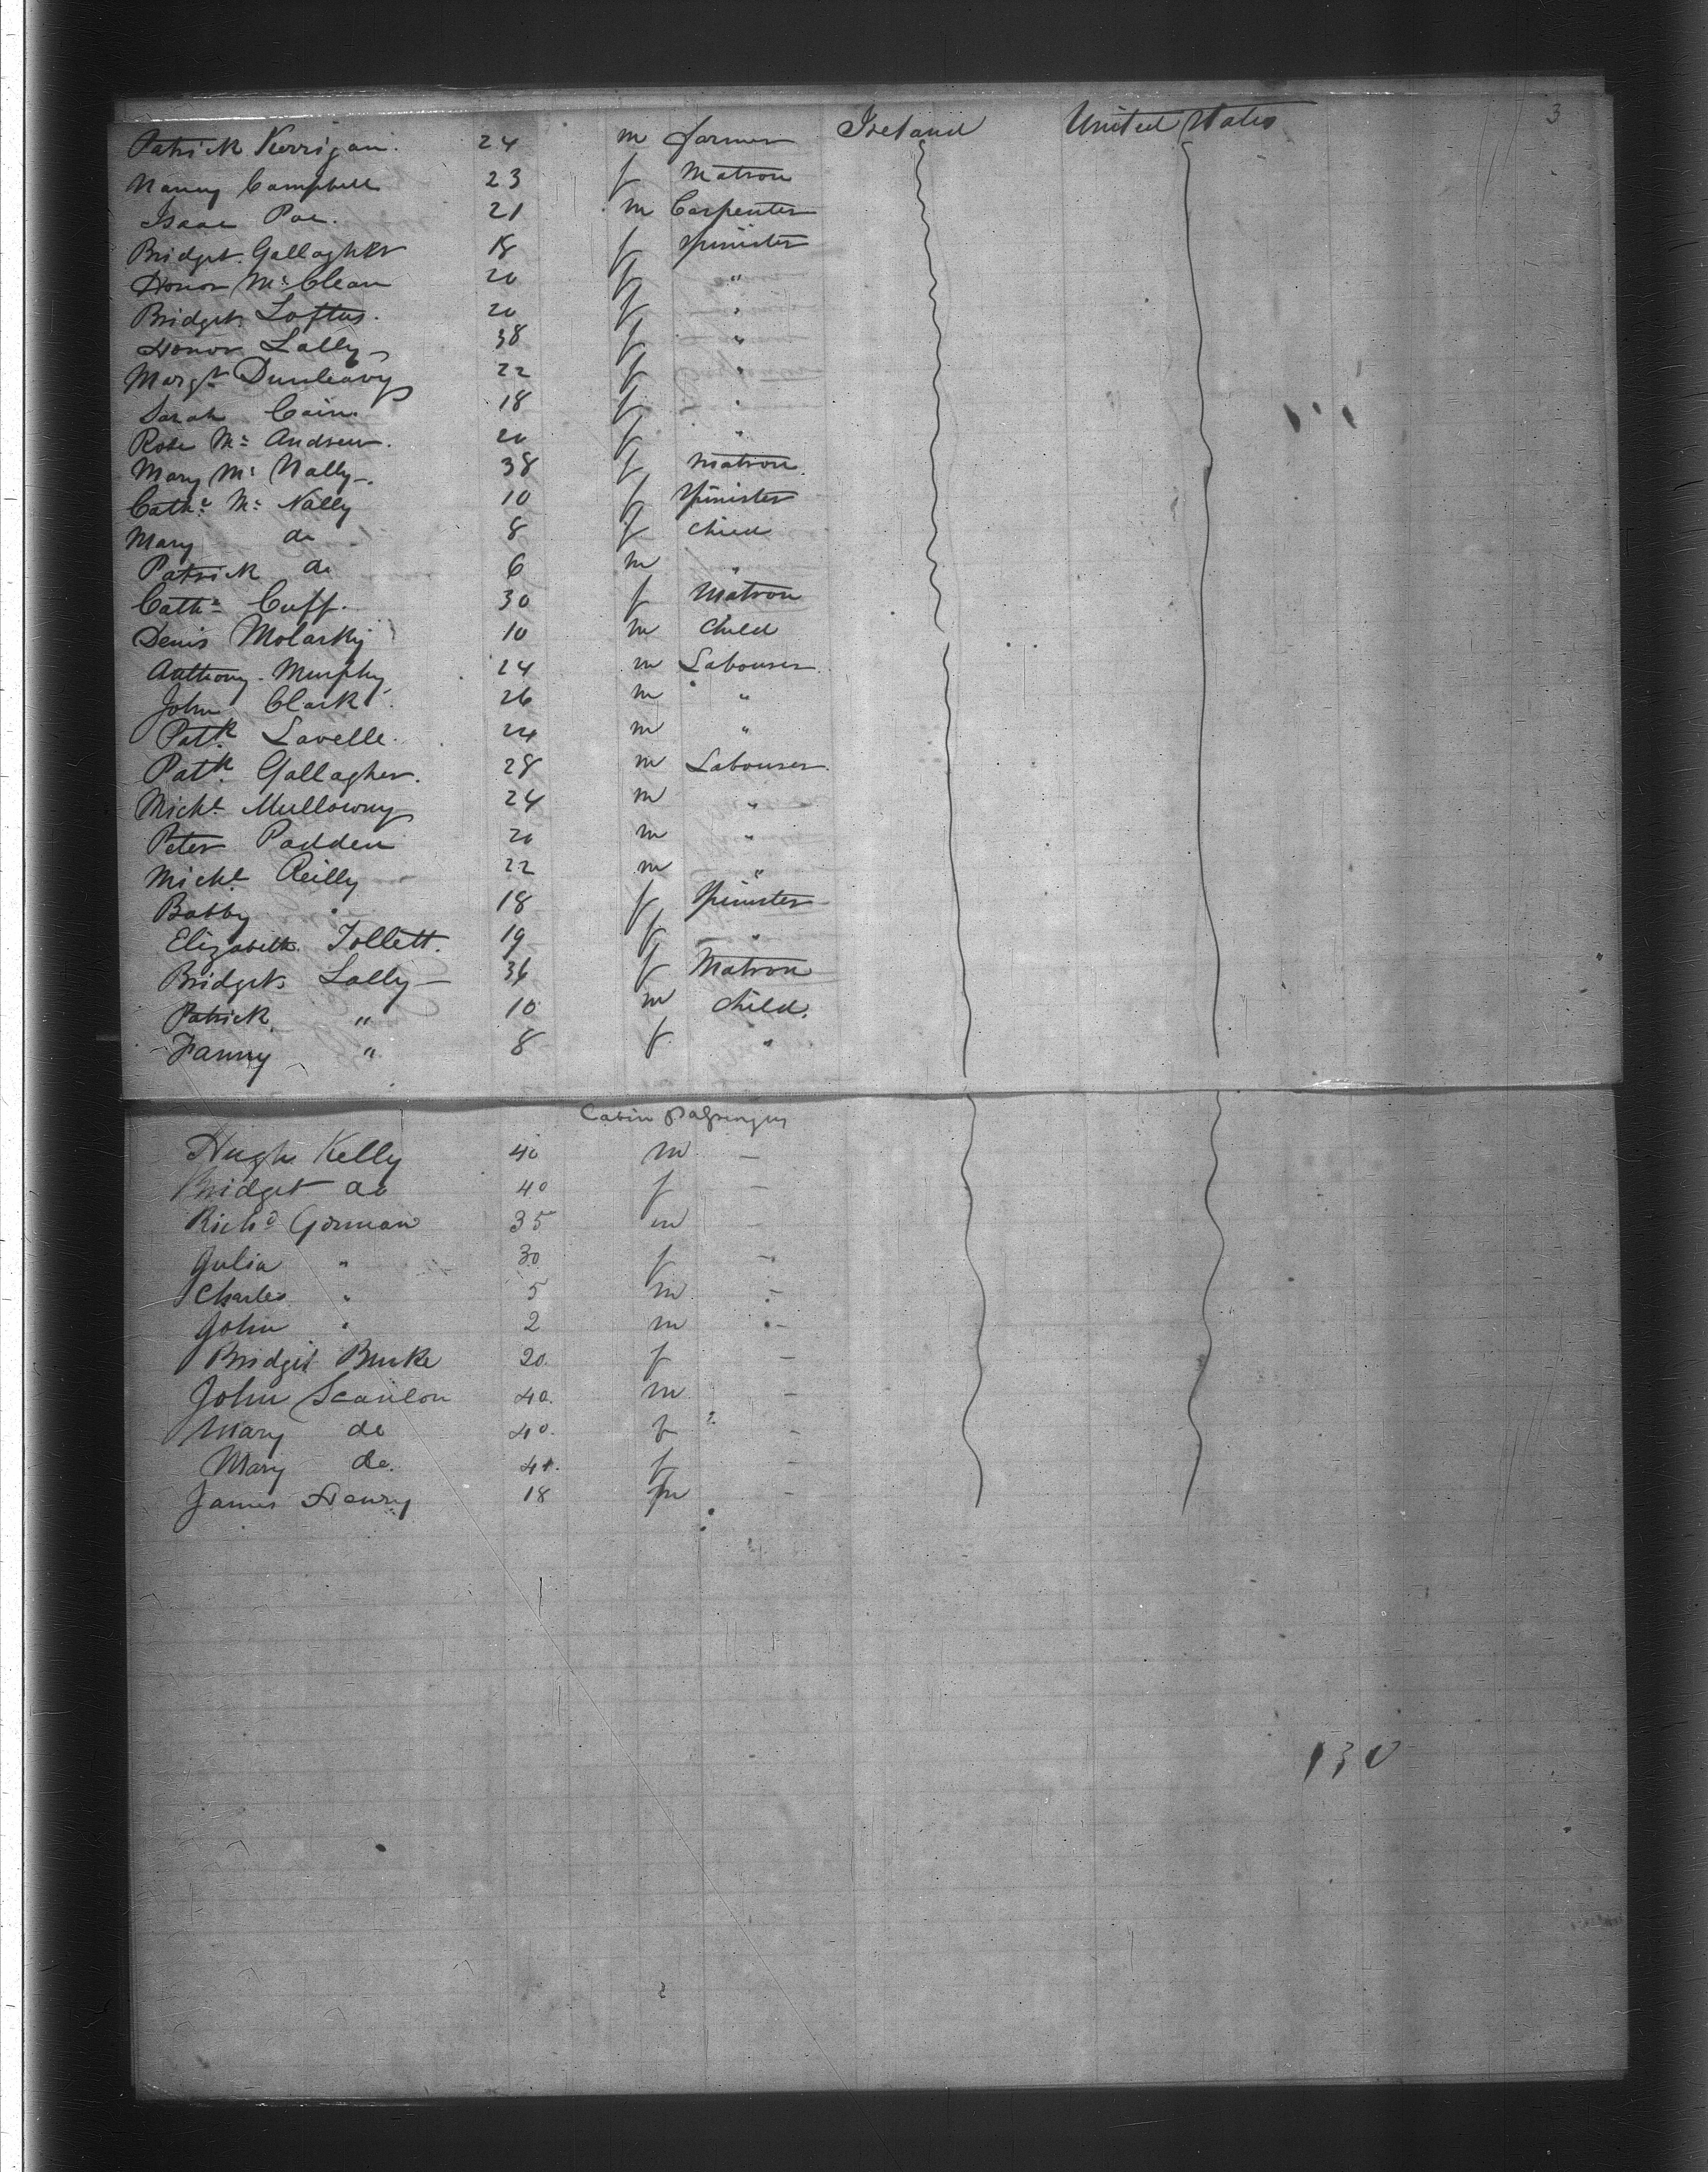 3
Patrick Kerrigan. 24 m farmer Ireland United States
Nanny Campbell 23 f Matron
Isaac Poe. 21 m Carpenter
Bridget Gallagher 18 f Spinister
Honor Mc Clean 20 f "
Bridget Loftus. 20 f "
Honor Lally 38 f "
Margt Dunleavy 22 f "
Sarah Cain 18 f "
Rose Mc Andrew. 20 f "
Mary Mc Nally. 38 f Matron
Cathe Mc Nally 10 f Spinister
Mary do 8 f Child
Patrick do 6 m "
Cathe Cuff. 30 f Matron
Denis Molarky 10 m Child
Anthony Murphy 24 m Labourer
John Clark 26 m "
Patk Lavelle. 24 m "
Patk Gallagher. 28 m Labourer
Michl Mullowny 24 m "
Peter Padden 20 m "
Michl Reilly 22 m "
Babby " 18 f Spinister
Elizabeth Tollett. 19 f "
Bridget Lally 36 f Matron
Patrick " 10 m Child.
Fanny " 8 f "
Cabin Passengers
Hugh Kelly 40 m –
Bridget do 40 f –
Richd Gorman 35 m –
Julia " 30 f –
Charles " 5 m –
John " 2 m –
Bridget Burke 20. f –
John Scanlon 40. m –
Mary do 40. f –
Mary do. f –
James Henry 18 m –
130